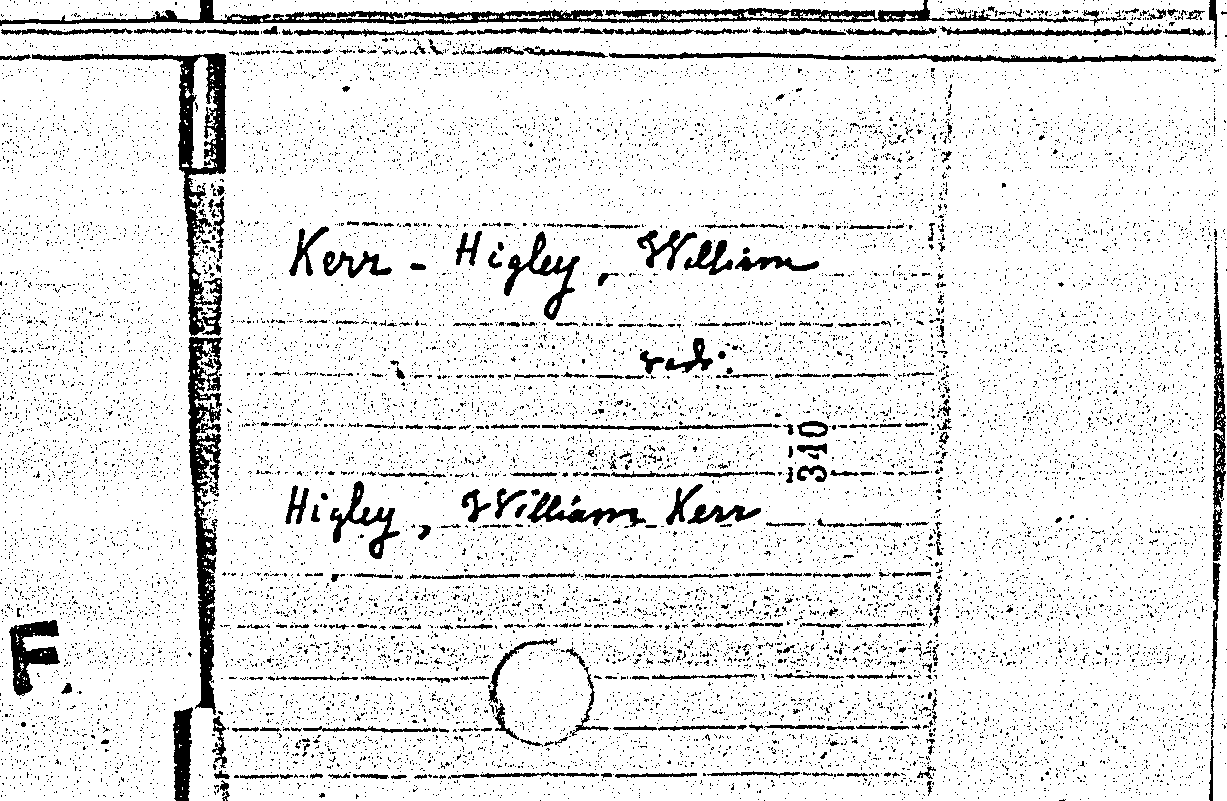 Kerr - Higley, William
340
Higley, William Kerr
F